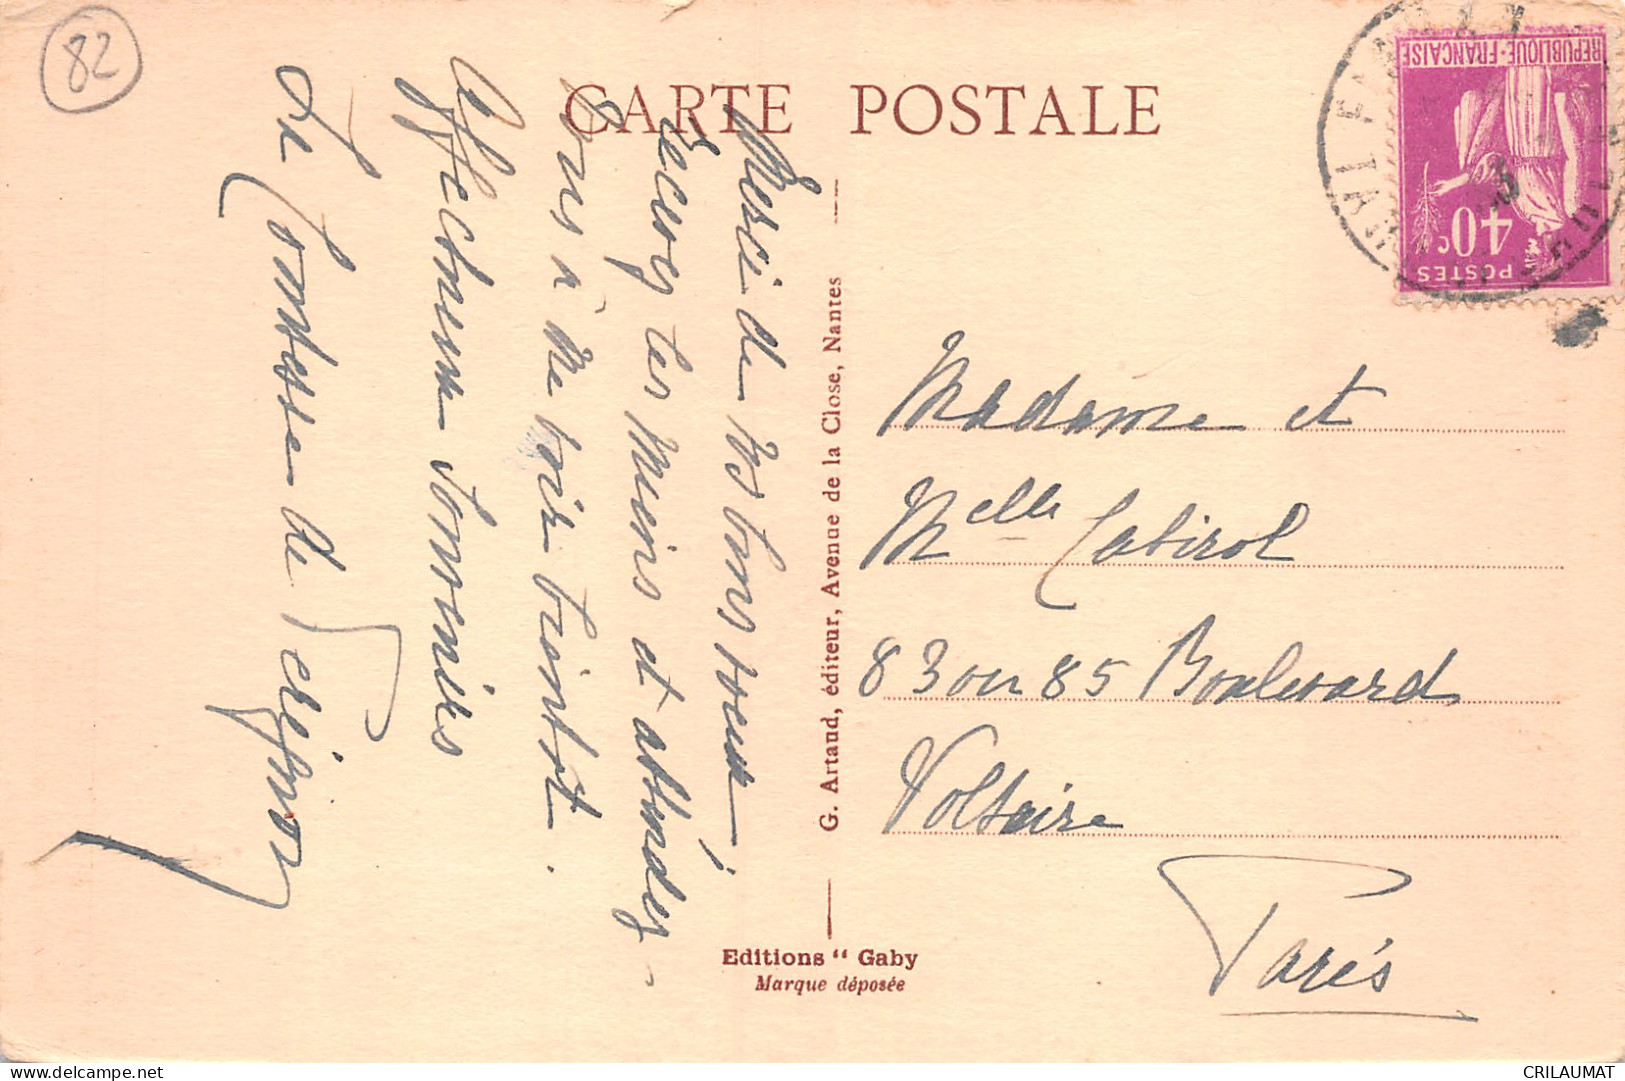 82
CARTE POSTALE
REPUBLIQUE·FRANÇAISE
40c
POSTES
Merci de vos bons vœux!
Recevez les miens et attendez
vous à me voir bientôt.
Affectueux souvenirs
La Comtesse de
G. Artaud, éditeur, Avenue de la Close, Nantes
Madame et
Melle Cabirol
83 ou 85 Boulevard
Voltaire
Paris
Editions " Gaby
Marque déposée
www.delcampe.net
CRILAUMAT